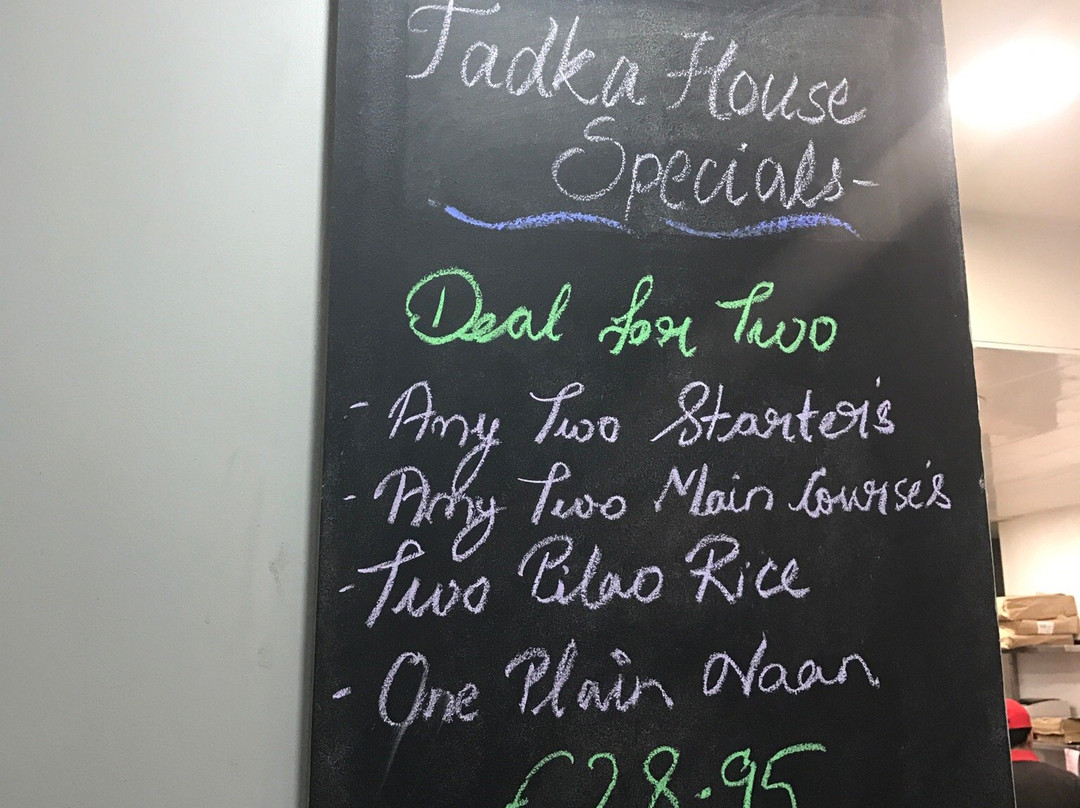 Tadka House
Specials-
Deal for Two
- Any Two Starter's
- Any Two Main Course's
- Two Pilao Rice
- One Plain Naan
28.95